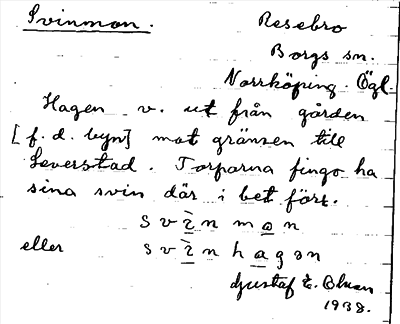 Svinmon. Resebro
Borgs sn.
Norrköping. Ögl.
Hagen v. ut från gården
[f. d. byn] mot gränsen till
Leverstad. Torparna fingo ha
sina svin där i bet förr.
svi̱nmo̱n
eller svi̱nha̱gən
Gustaf E. Bluan
1938.